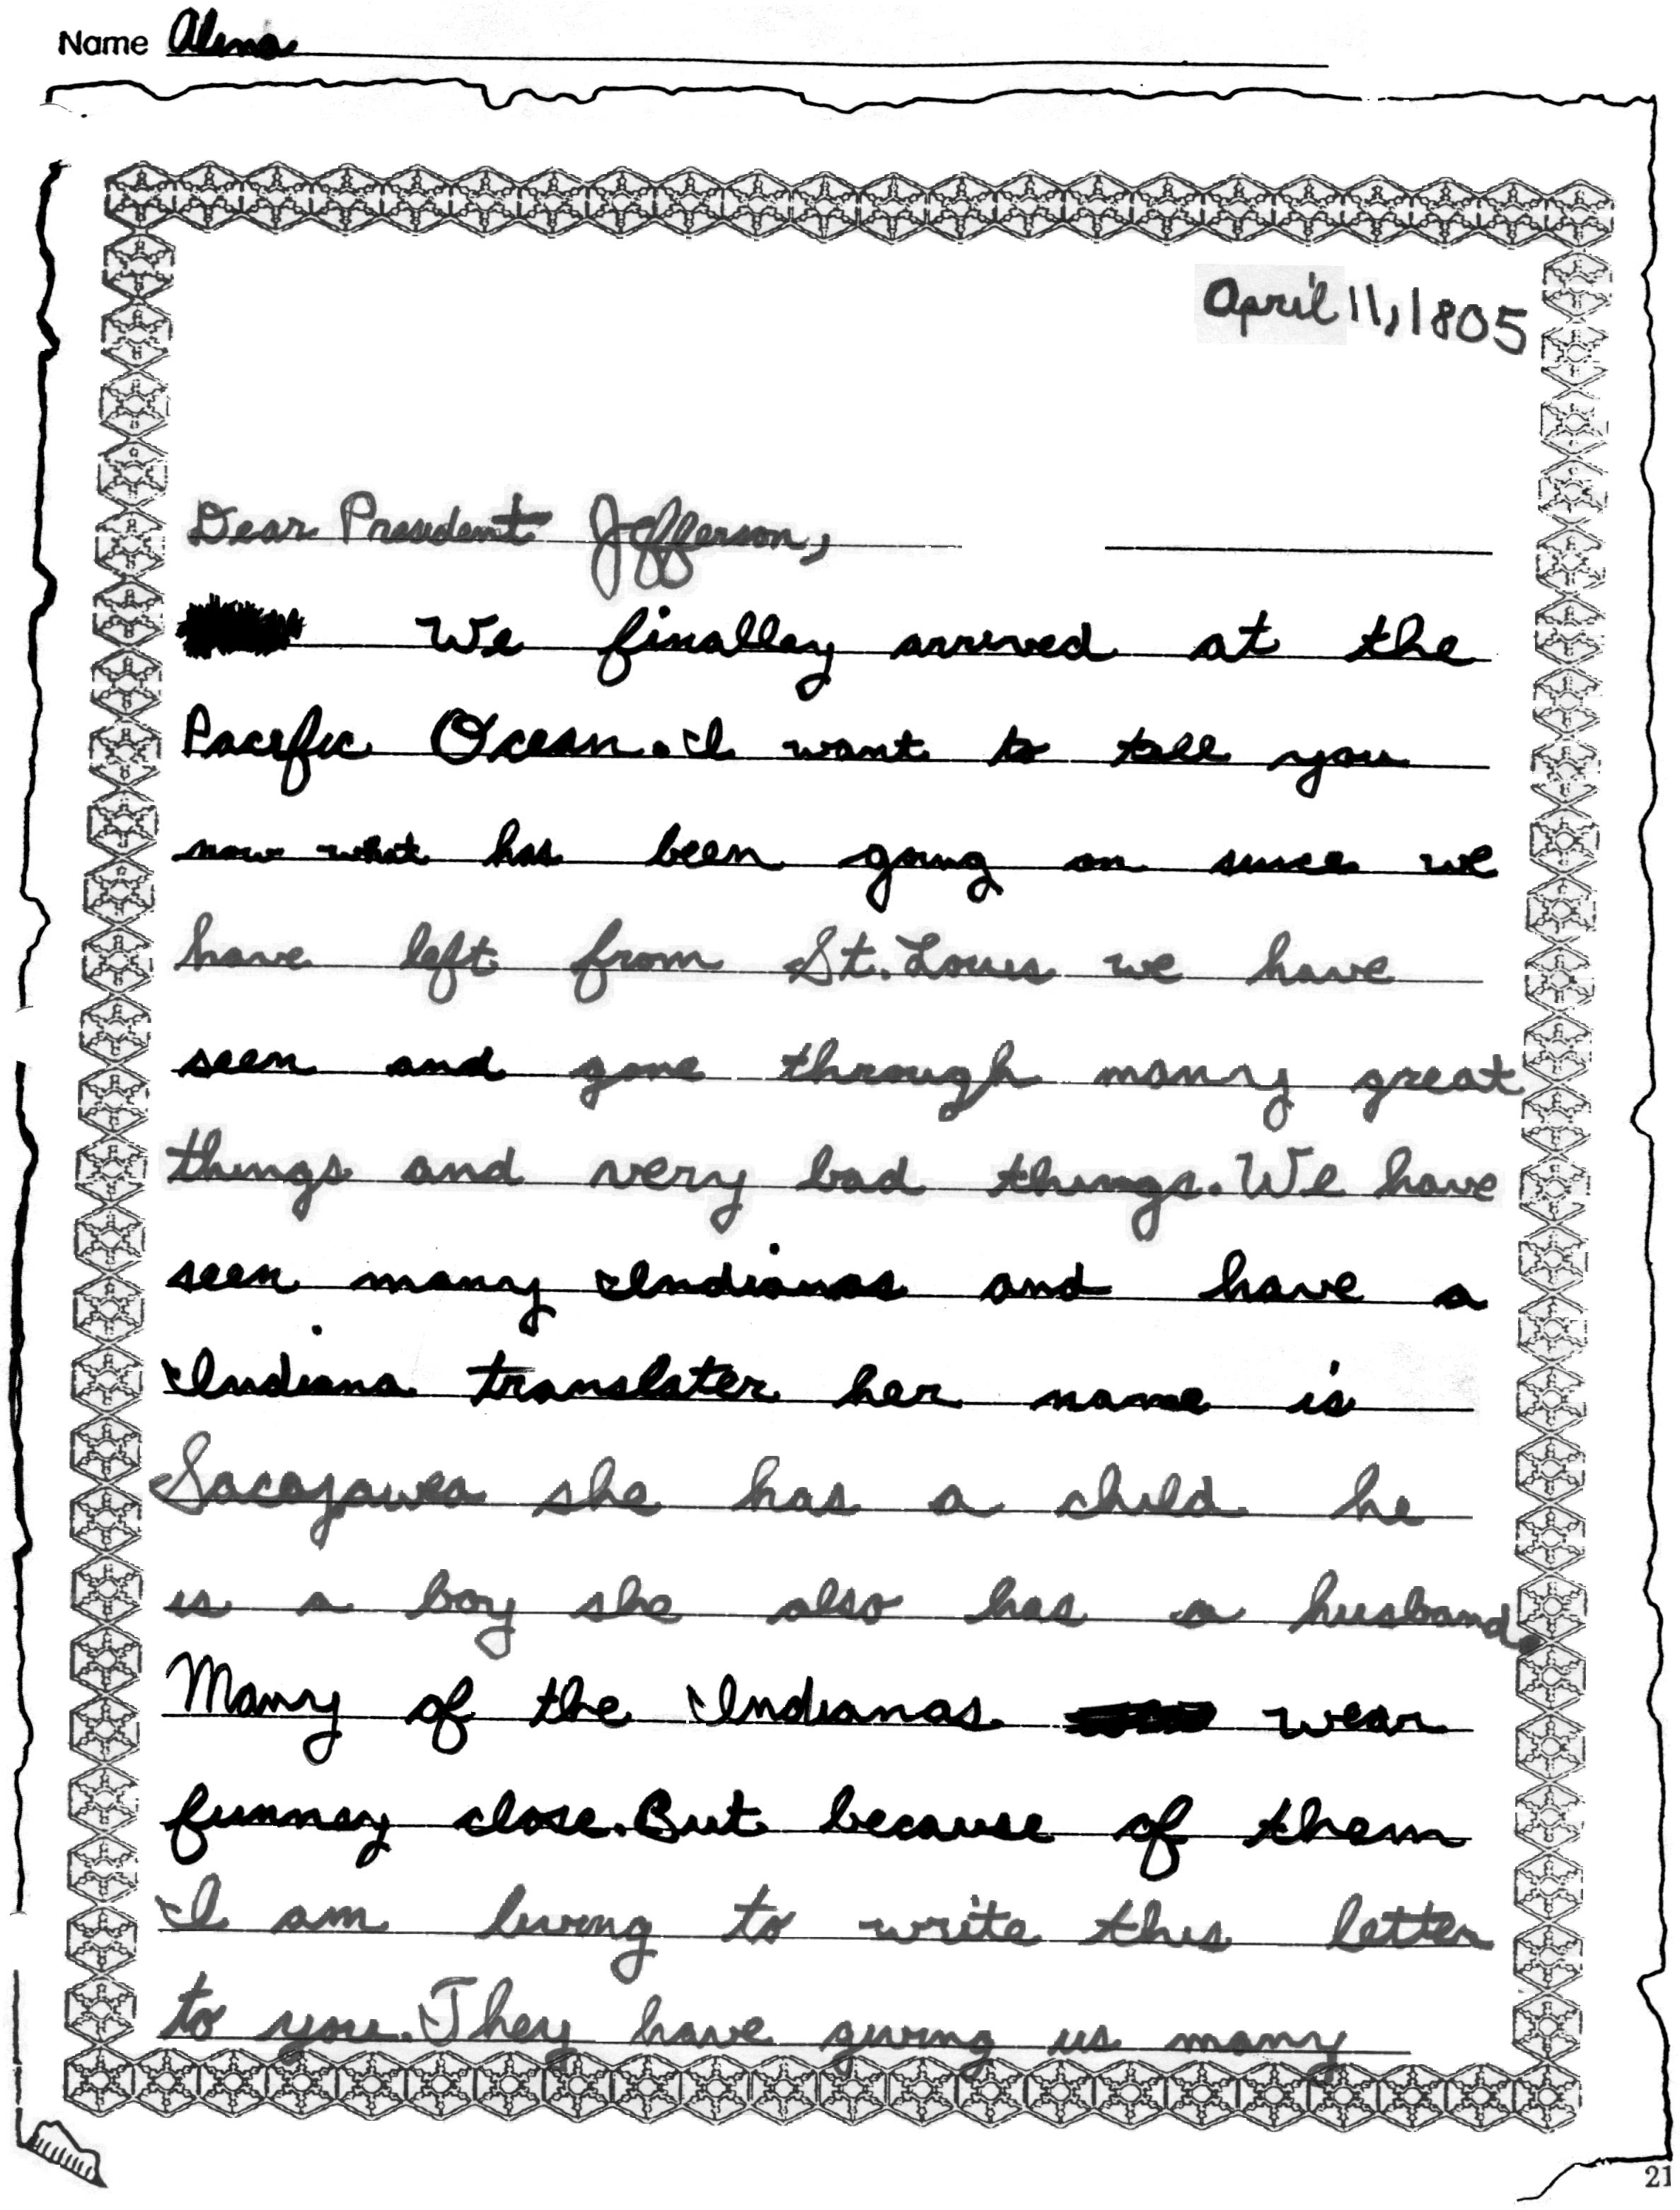 Name Alena
April 11, 1805
Dear President Jefferson,
We finalley arrived at the
Pacific Ocean. I want to tell you
now what has been going on since we
have left from St. Louis we have
seen and gone through many great
things and very bad things. We have
seen many Indianas and have a
Indiana translater her name is
Sacajawea she has a child he
is a boy she also has a husband.
Many of the Indianas wear
funney close. But because of them
I am living to write this letter
to you. They have giving us many
21